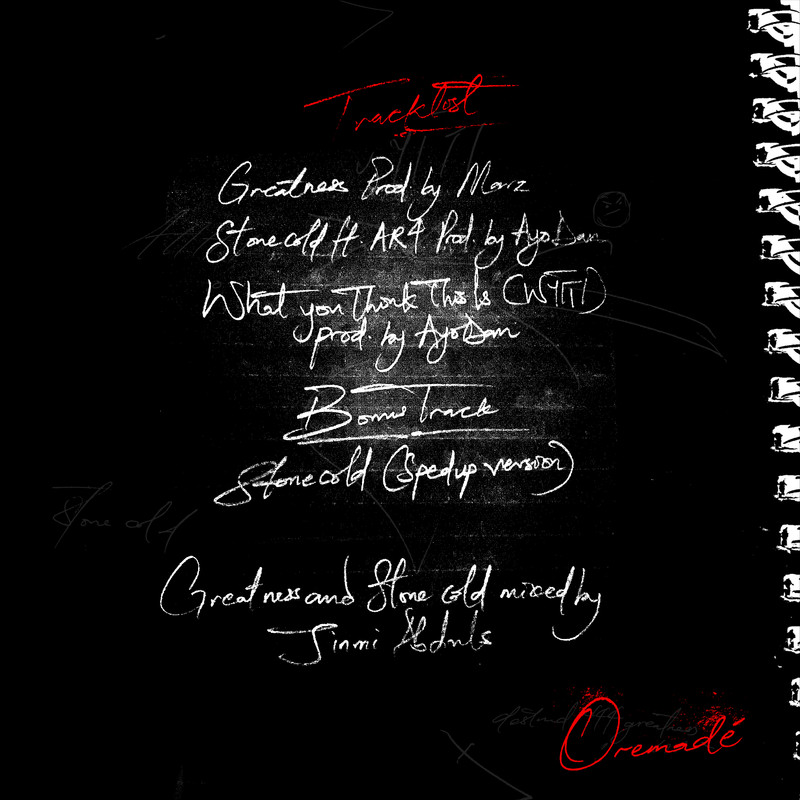 Tracklist
Greatness Prod. by Marz
Stone cold ft. AR4 Prod. by AyoDam
What you Think This Is (WYTTI)
prod. by AyoDam
Bonus Track
Stone cold (Spedup version)
Stone cold
Greatness and Stone cold mixed by
Jinmi Abduls
Oremadé